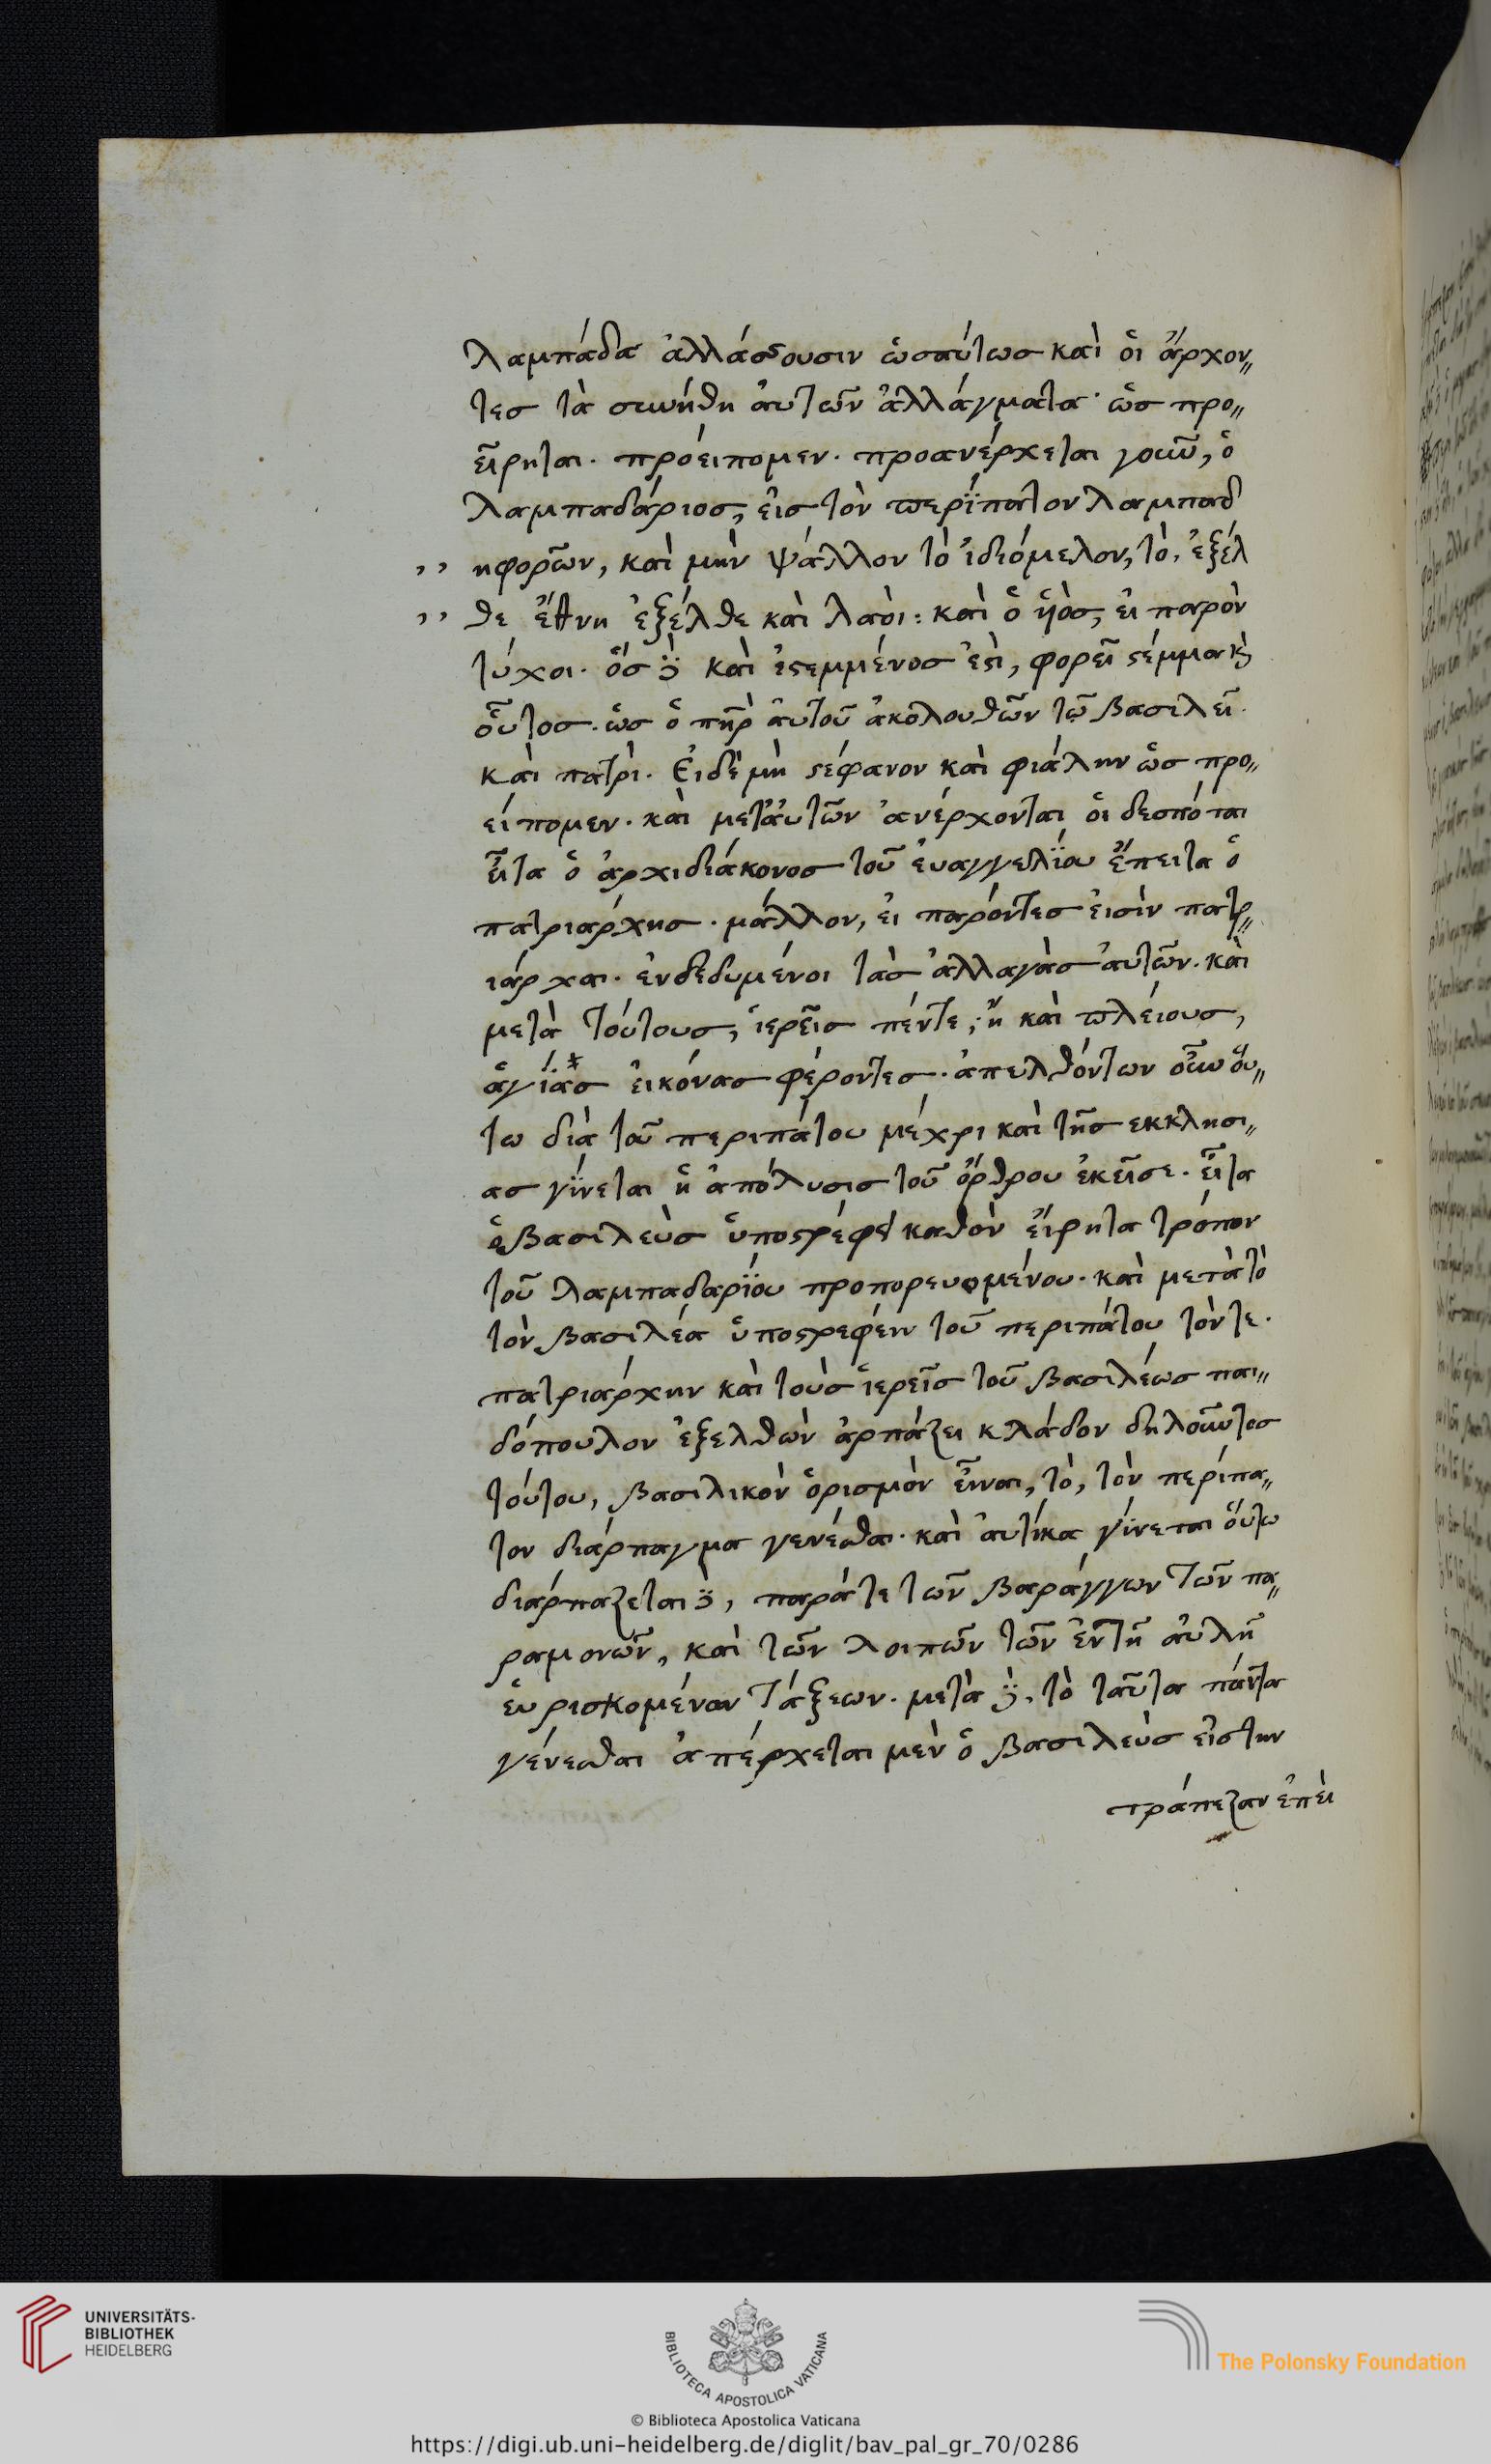 λαμπάδα ἀλλάσσουσιν ὡσαύτωσ καὶ ὁι ἄρχον〃
τεσ τὰ συνήθη ἀυτῶν ἀλλάγματα· ὡσ προ〃
είρηται. πρόειπομεν. προανέρχεται γοῦν, ὁ
λαμπαδάριοσ, ἐισ τὸν περίπατον λαμπαδ
,, ηφορῶν, καὶ μὴν ψάλλον τὸ ἰδιόμελον, τὸ, ἐξέλ
,, θε ἔθνη ἐξέλθε καὶ λαὸι: καὶ ὁ ὑὸσ, ἐι παρὸν
τύχοι. ὅσ καὶ ἐϛεμμένοσ ἐϛὶ, φορεῖ ϛέμμα κ̀
οὗτοσ. ὡσ ὁ πη̃ρ ἀυτοῦ ἀκολουθῶν τῷ βασιλεῖ.
καὶ πατρὶ. Ἐιδὲμὴ ϛέφανον καὶ φιάλην ὡσ προ〃
είπομεν. καὶ μετἀυτῶν ἀνέρχονται ὁι δεσπόται
εἶτα ὁ ἀρχιδιάκονοσ τοῦ ἐυαγγελΐου ἔπειτα ὁ
πατριάρχησ. μάλλον, ἐι παρόντεσ ἐισὶν πατρ〃
ιάρχαι. ἐνδεδυμένοι τὰσ ἀλλαγὰσ ἀυτῶν. καὶ
μετὰ τούτουσ, ἱερεῖσ πέντε, ἢ καὶ πλείουσ,
ἁγίασ ἐικόνασ φέροντεσ. ἀπελθόντων οὖν ὅυ〃
τω διὰ τοῦ περιπάτου μέχρι καὶ τῆσ εκκλησι〃
ασ γίνεται ἡ ἀπόλυσισ τοῦ ὄρθρου ἐκεῖσε. εἶτα
ὁ βασιλεὺσ ὑποϛρέφει καθὸν ἔιρητα τρόπον
τοῦ λαμπαδαρΐου προπορευομένου. καὶ μετὰ τὸ
τὸν βασιλέα ὑποϛρεφέιν τοῦ περιπάτου τόντε.
πατριάρχην καὶ τοὺσ ἱερεῖσ τοῦ βασιλέωσ παι〃
δόπουλον ἐξελθὼν ἁρπάζει κλάδον δηλοῦντεσ
τούτου, βασιλικὸν ὁρισμὸν εἶναι, τὸ, τὸν περίπα〃
τον διάρπαγμα γενέσθαι. καὶ ἀυτίκα γίνεται ὅυτω
διάρπαζεται, παράτε τῶν βαράγγων τῶν πα〃
ραμονῶν, καὶ τῶν λοιπῶν τῶν ἐντῆ ἀυλῆ
ἑυρισκομένων τάξεων. μετὰ, τὸ ταῦτα πάντα
γένεσθαι ἀπέρχεται μὲν ὁ βασιλεὺσ ἐιστην
τράπεζαν ἐπὲι
UNIVERSITÄTS-
BIBLIOTHEK
HEIDELBERG
BIBLIOTECA APOSTOLICA VATICANA
The Polonsky Foundation
© Biblioteca Apostolica Vaticana
https://digi.ub.uni-heidelberg.de/diglit/bav_pal_gr_70/0286